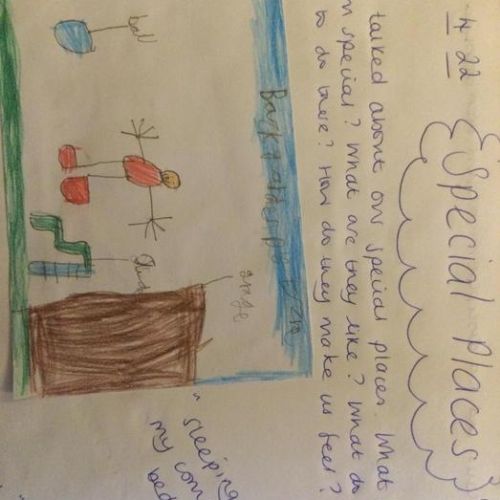 4 22
Special Places
talked about our special places. What
n special? What are they like? What do
to do there? How do they make us feel?
ball
"sleeping
my com
bed